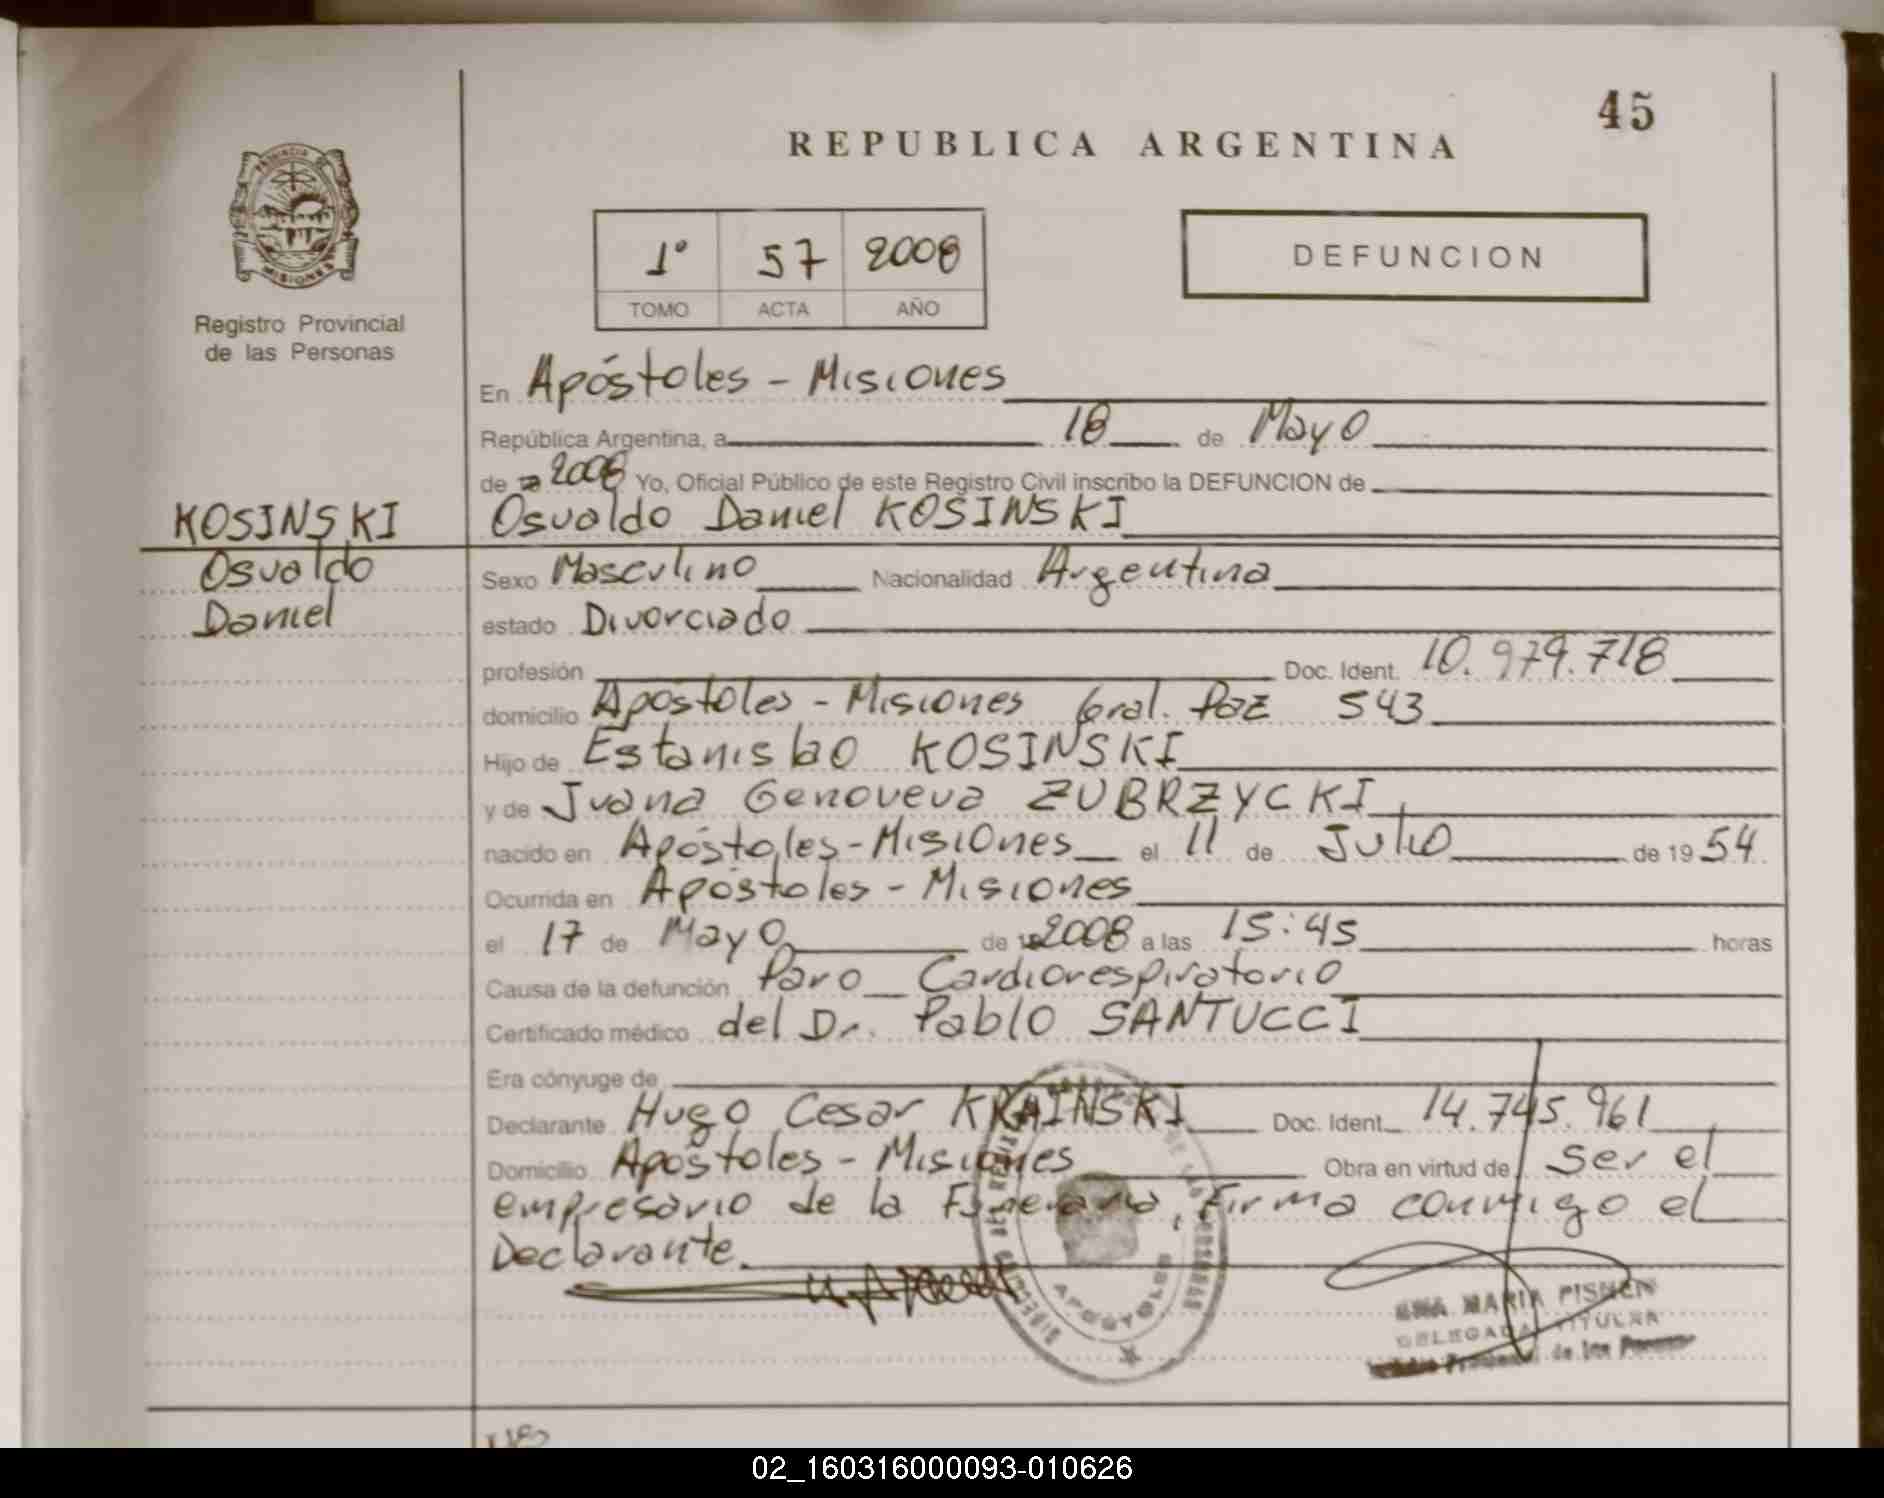 45
REPUBLICA ARGENTINA
PROVINCIA DE
MISIONES
1° 57 2008
TOMO ACTA AÑO
DEFUNCION
Registro Provincial
de las Personas
En Apóstoles - Misiones
República Argentina, a 18 de Mayo
de 2008 Yo, Oficial Público de este Registro Civil inscribo la DEFUNCION de
KOSINSKI Osvaldo Daniel KOSINSKI
Osvaldo Sexo Masculino Nacionalidad Argentina
Daniel estado Divorciado
profesión Doc. Ident. 10.979.718
domicilio Apóstoles - Misiones Gral. Paz 543
Hijo de Estanislao KOSINSKI
y de Juana Genoveva ZUBRZYCKI
nacido en Apóstoles - Misiones el 11 de Julio de 1954
Ocurrida en Apóstoles - Misiones
el 17 de Mayo de 2008 a las 15:45 horas
Causa de la defunción Paro Cardiorespiratorio
Certificado médico del Dr. Pablo SANTUCCI
Era cónyuge de
Declarante Hugo Cesar KRAINSKI Doc. Ident. 14.745.961
Domicilio Apóstoles - Misiones Obra en virtud de Ser el
empresario de la Funeraria, Firma conmigo el
Declarante.
APOSTOLES
MARIA PISNEN
DELEGADA TITULAR
de las
02_160316000093-010626